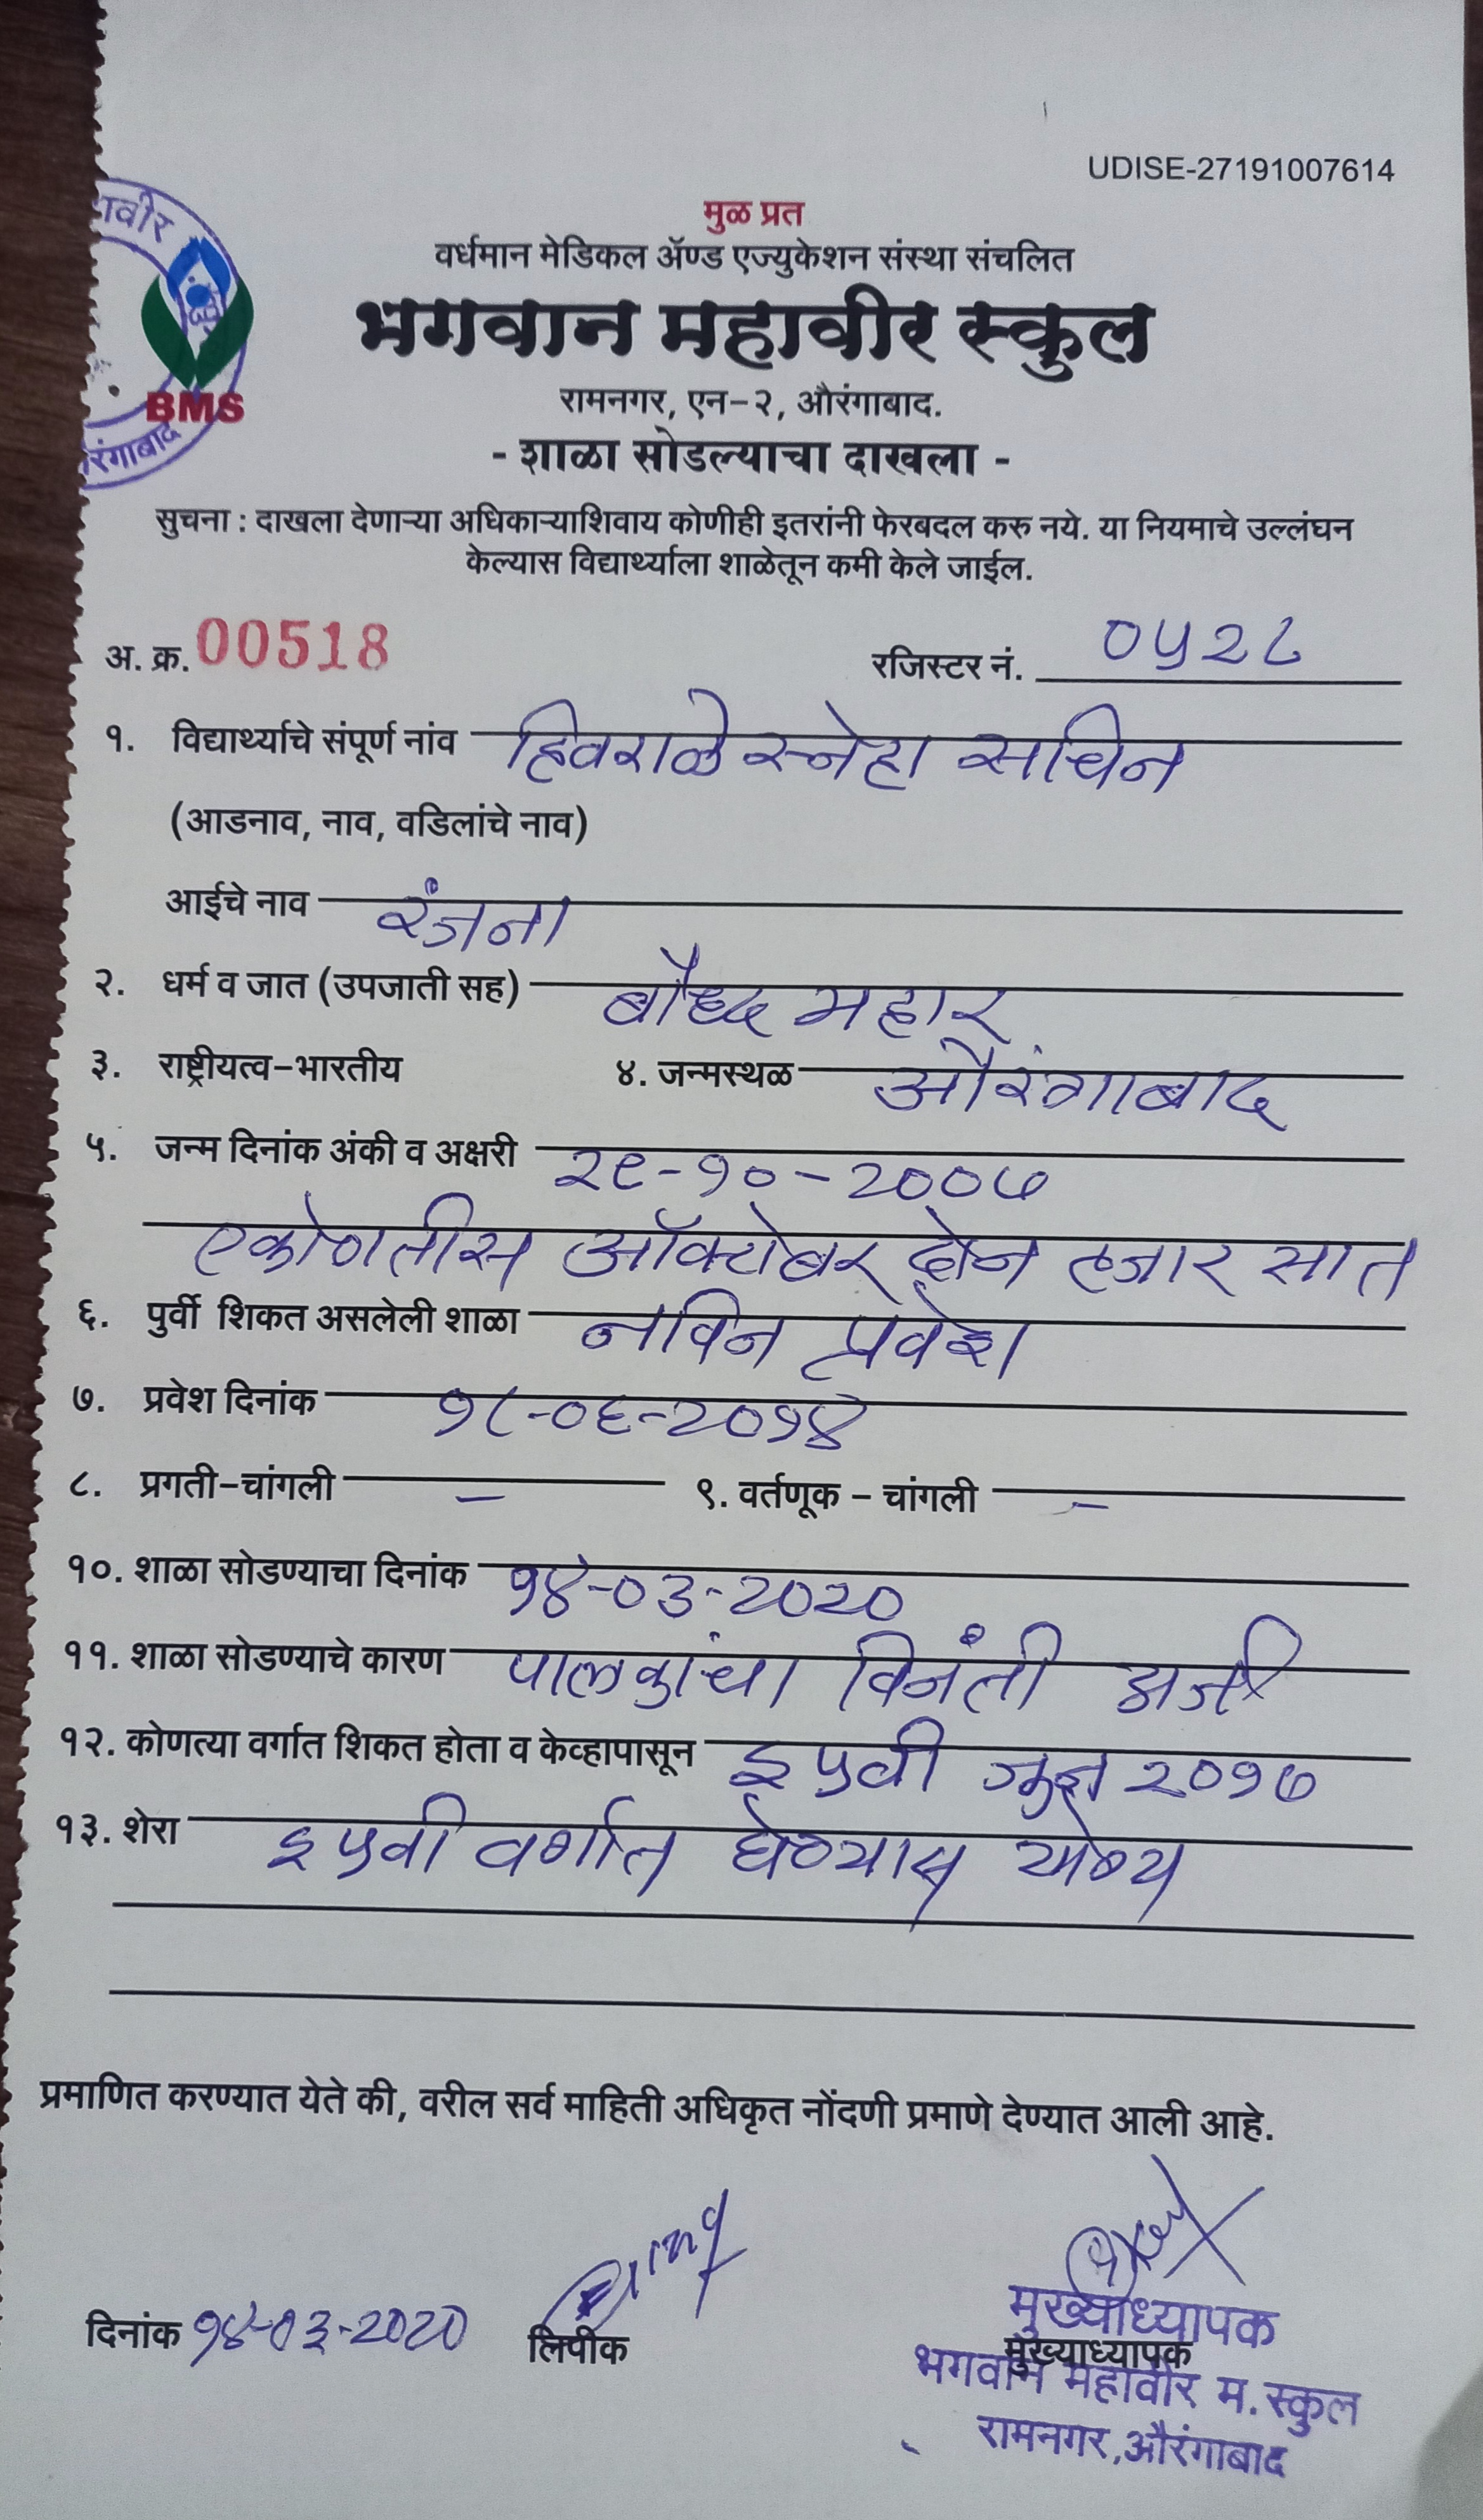 UDISE-27191007614
मुळ प्रत
वर्धमान मेडिकल ॲण्ड एज्युकेशन संस्था संचलित
भगवान महावीर स्कुल
BMS
रामनगर, एन-२, औरंगाबाद.
- शाळा सोडल्याचा दाखला -
सुचना : दाखला देणाऱ्या अधिकाऱ्याशिवाय कोणीही इतरांनी फेरबदल करु नये. या नियमाचे उल्लंघन
केल्यास विद्यार्थ्याला शाळेतून कमी केले जाईल.
अ. क्र. 00518 रजिस्टर नं. ०५२८
१. विद्यार्थ्याचे संपूर्ण नांव हिवराळे स्नेहा सचिन
(आडनाव, नाव, वडिलांचे नाव)
आईचे नाव रंजना
२. धर्म व जात (उपजाती सह) बौध्द महार
३. राष्ट्रीयत्व-भारतीय ४. जन्मस्थळ औरंगाबाद
५. जन्म दिनांक अंकी व अक्षरी २९-१०-२००७
एकोणतीस ऑक्टोबर दोन हजार सात
६. पुर्वी शिकत असलेली शाळा नविन प्रवेश
७. प्रवेश दिनांक १८-०६-२०१४
८. प्रगती-चांगली - ९. वर्तणूक - चांगली -
१०. शाळा सोडण्याचा दिनांक १४-०३-२०२०
११. शाळा सोडण्याचे कारण पालकांचा विनंती अर्ज
१२. कोणत्या वर्गात शिकत होता व केव्हापासून इ ५वी जून २०१७
१३. शेरा इ ५वी वर्गात घेण्यास योग्य
प्रमाणित करण्यात येते की, वरील सर्व माहिती अधिकृत नोंदणी प्रमाणे देण्यात आली आहे.
दिनांक १४-०३-२०२० लिपीक मुख्याध्यापक
मुख्याध्यापक
भगवान महावीर म. स्कुल
रामनगर, औरंगाबाद